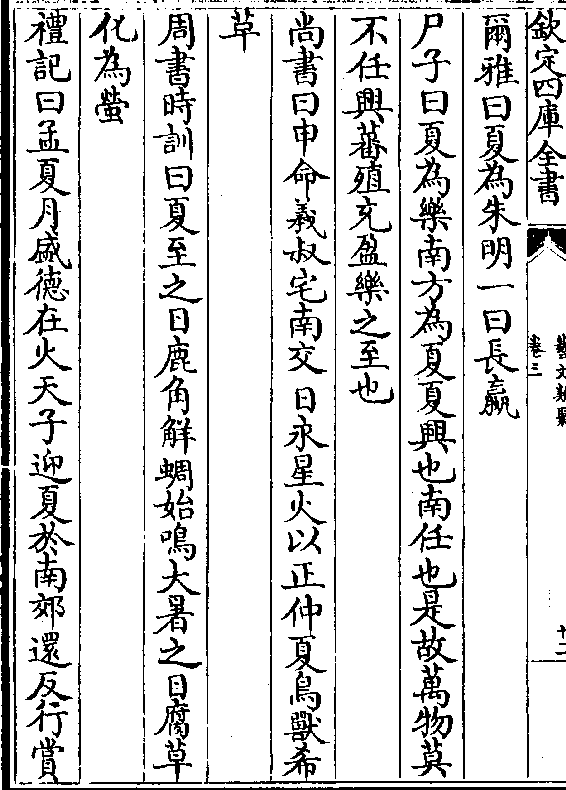 欽定四庫全書
藝文類聚
卷三
十二
爾雅曰夏為朱明一曰長嬴
尸子曰夏為樂南方為夏夏興也南任也是故萬物莫
不任興蕃殖充盈樂之至也
尚書曰申命羲叔宅南交日永星火以正仲夏鳥獸希
革
周書時訓曰夏至之日鹿角解蜩始鳴大暑之日腐草
化為螢
禮記曰孟夏月盛德在火天子迎夏於南郊還反行賞